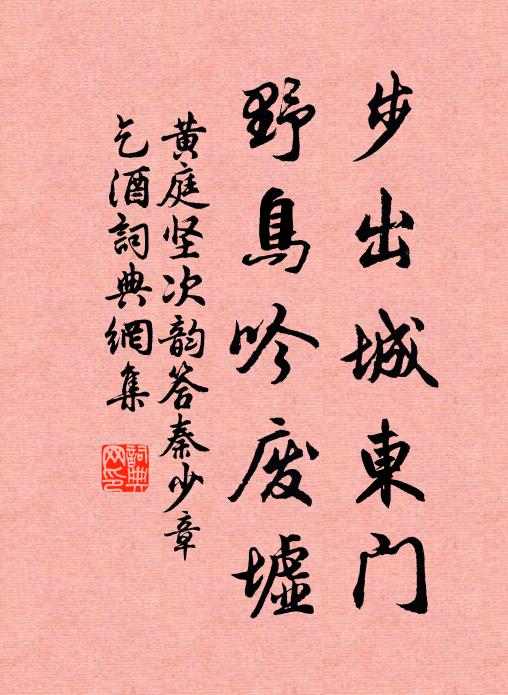 步出城東門
野鳥吟废墟
黄庭坚次韵答秦少章
乞酒詞典網集
詞典
网印